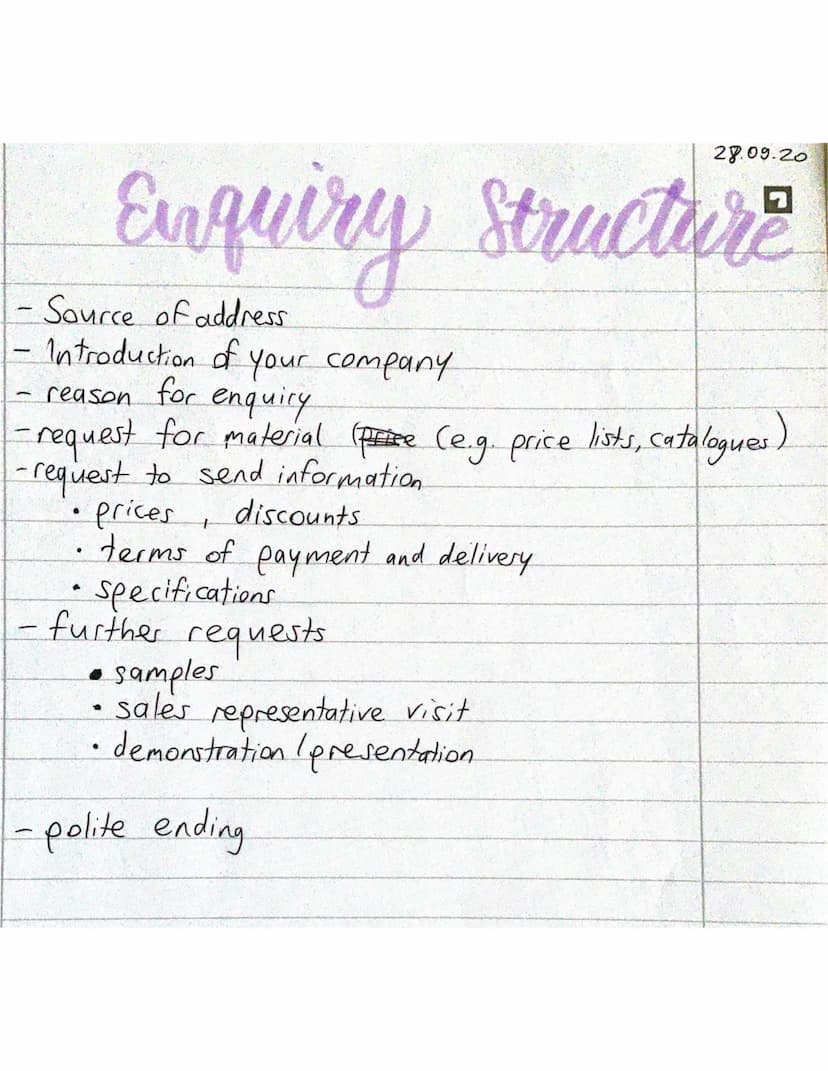 28.09.20
Enquiry Structure
- Source of address
- Introduction of your company
- reason for enquiry
- request for material (e.g. price lists, catalogues)
- request to send information
• prices, discounts
• terms of payment and delivery
• specifications
- further requests
• samples
• sales representative visit
• demonstration/presentation
- polite ending